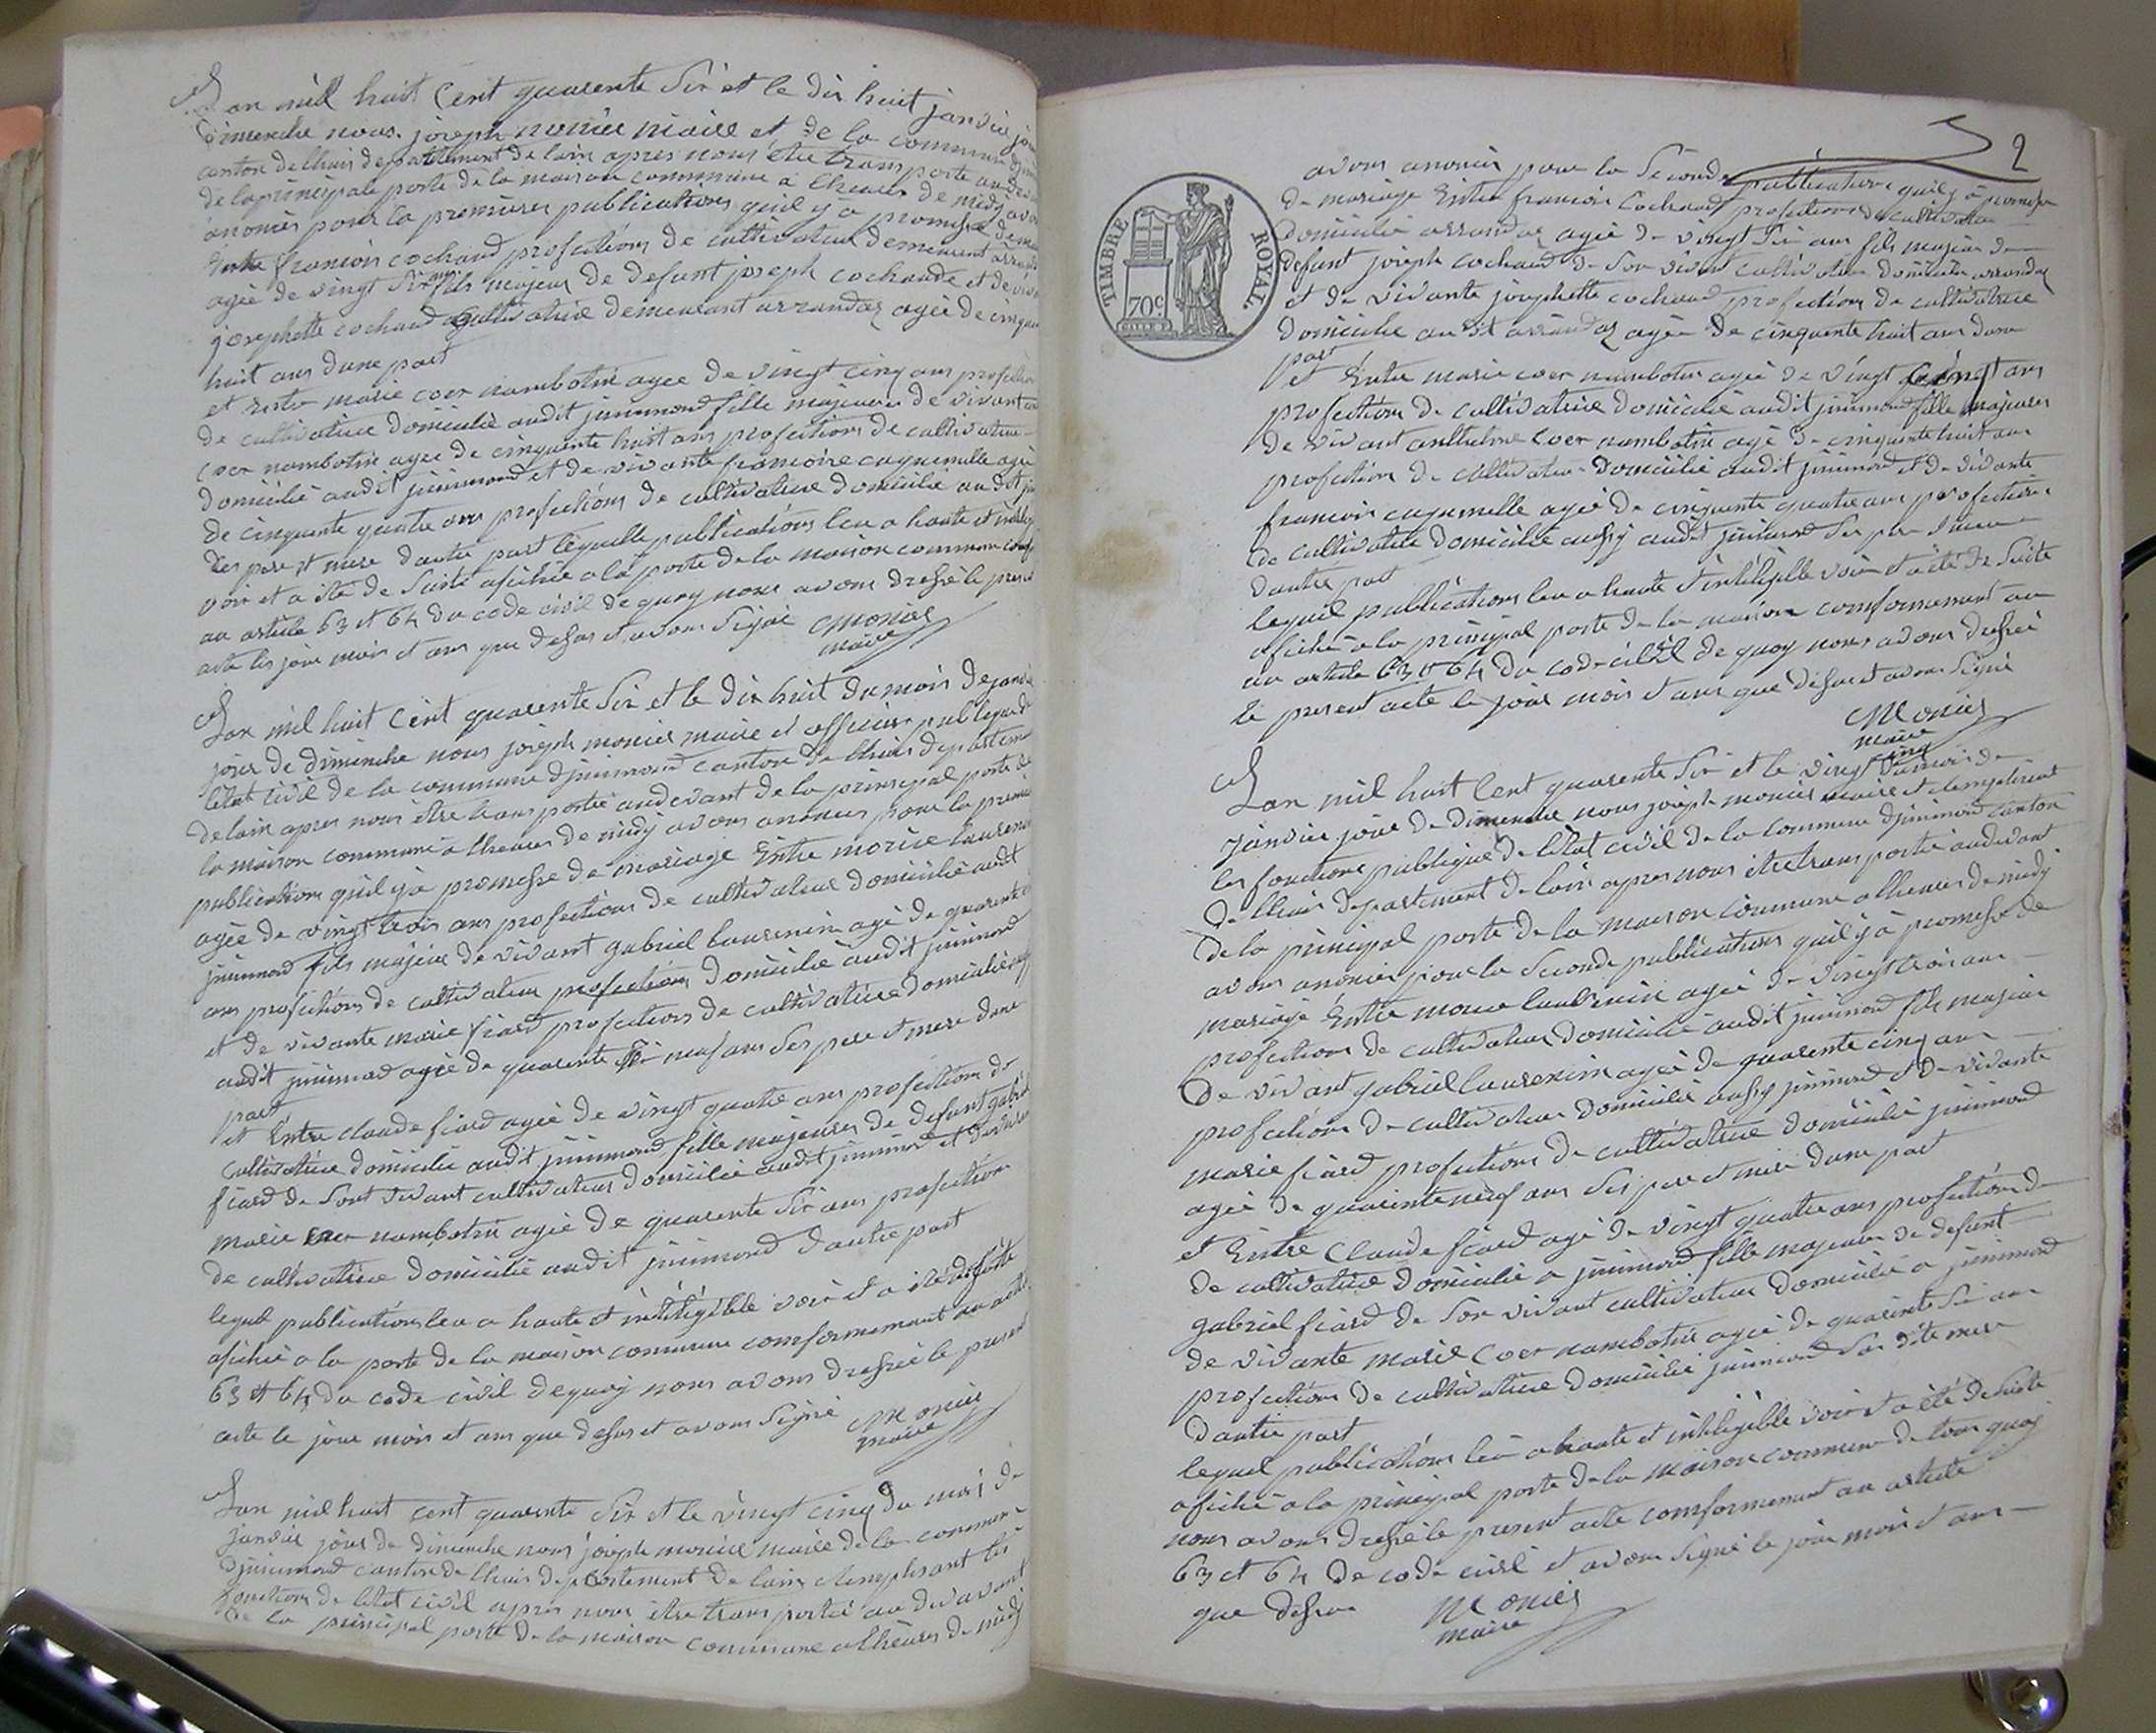 Lan mill huit Cent quarente Six et le dix huit janvier jou
dimenche nous joseph monier maire et de la commune djuj
canton de lhuis departement de lain apres nous être trans porte au dev
de la principale porte de la maison commune a lheures de midy avo
anonces pour la premieres publications quil y a promesse de ma
Entre francois cochaud profections de cultivateur demeurent arrand
agée de vingt Six ans fils majeur de defunt joseph cochaud et de viv
josephette cochaud cultivatrice demeurant arrandas agée de cinquen
huit ans dune part
et Entre marie coer nambotin agee de vingt cinq ans profection
de cultivatrice domicilie audit jujurieud fille majeures de vivant an
Coer nambotin agee de cinquente huit ans profections de cultivateur
domicilié audit et de vivante francoise cuquemelle agée
de cinquente quatre ans profections de cultivatrice domicilie audit
Ses pere et mere dautre part lequelle publications leu a haute et intelig
voix et a été de Suite afichée a la porte de la maison commune conf
au article 63 et 64 du code civil de quoy nous avons dressé le present
acte les jour mois et ans que desus et avons Signé Monier
maire
Lan mil huit Cent quarente Six et le dix huit du mois de janvie
jour de dimenche nous joseph monier maire et officier publique de
letat civil de la commune canton de lhuis departemen
de lain apres nous être trans portée audevant de la principal porte de
la maison commune a lheures de midy avons anonces pour la premie
publications quil y a promesse de mariage Entre morice laurencin
agée de vingt trois ans profections de cultivateur domicilié audit
fils majeur de vivant gabriel laurencin agé de quarente
ans profections de cultivateur profections domicilie audit
et de vivante marie fiard profections de cultivatrice domicilié
audit agée de quarente neuf ans Ses pere et mere dune
part
et Entre claude fiard agée de vingt quatre ans profections de
Cultivatrice domicilie audit fille majeures de defunt gabriel
fiard de Sont vivant cultivateur domicilie audit et de vivan
marie coer nambotin agée de quarente Six ans profection
de cultivatrice domicilié audit dautre part
lequel publications leu a haute et inteligible voix et a été de Suite
afichée a la porte de la maison commune comformemant au article
63 et 64 du code civil de quoy nous avons dressée le present
acte le jour mois et ans que desus et avons Signé Monier
maire
Lan mil huit cent quarente Six et le vingt cinq du mois de
janvier jour de dimenche nous joseph monier maire de la commune
canton de lhuis departement de lain remplisant les
fonctions de letat civil apres nous être trans portée au devant
de la principal porte de la maison commune a lheures de midy
2
TIMBRE ROYAL
70c
avons anonces pour la Seconde publications quil y a promesse
de mariage Entre francois Cochaud profections de cultivateur
domicilié arrandas agée de vingt Six ans fils majeur de
defunt joseph cochaud de Son vivant cultivateur domicilié arrandas
et de vivante josephette cochaud profections de cultivatrice
domicilie audit arrandas agée de cinquente huit ans dune
part
et Entre marie coer nambotin agée de vingt cinq ans
profections de cultivatrice domicilié audit fille majeures
de vivant anthelme Coer nambotin agé de cinquente huit ans
profection de cultivateur domicilié audit et de vivante
francoise cuquemelle agée de cinquente quatre ans profections
de cultivatrice domicilie aussy audit Ses pere et mere
dautre part
lequel publications leu a haute et inteligible voix et a été de Suite
afiché a la principal porte de la maison comformemant au
au article 63 et 64 du code civil de quoy nous avons dressée
le present acte le jour mois et ans que desus et avons Signé
Monier
maire
Lan mil huit Cent quarente Six et le vingt cinq du mois de
janvier jour de dimenche nous joseph monier maire et remplisent
les fonctions publique de letat civil de la commune canton
de lhuis departement de lain apres nous être trans portée audevant
de la principal porte de la maison commune a lheures de midy
avons anonces pour la Seconde publications quil y a promesse de
mariage Entre morice laurencin agée de vingt trois ans
profections de cultivateur domicilié audit fils majeur
de vivant gabriel laurencin agée de quarente cinq ans
profections de cultivateur domicilié aussy et de vivante
marie fiard profections de cultivatrice domicilié
agée de quarente neuf ans Ses pere et mere dune part
et Entre Claude fiard agé de vingt quatre ans profections de
de cultivatrice domicilié a fille majeure de defunt
gabriel fiard de Son vivant cultivateur domicilié a
de vivante marie Coer nambotin agée de quarente Six ans
profections de cultivatrice domicilié Sa dite mere
dautre part
lequel publications leu a haute et inteligible voix et a été de Suite
afiché a la principal porte de la maison commune de tous quoy
nous avons dressé le present acte comformemant au article
63 et 64 de code civil et avons Signé le jour mois et ans
que desus Monier
maire